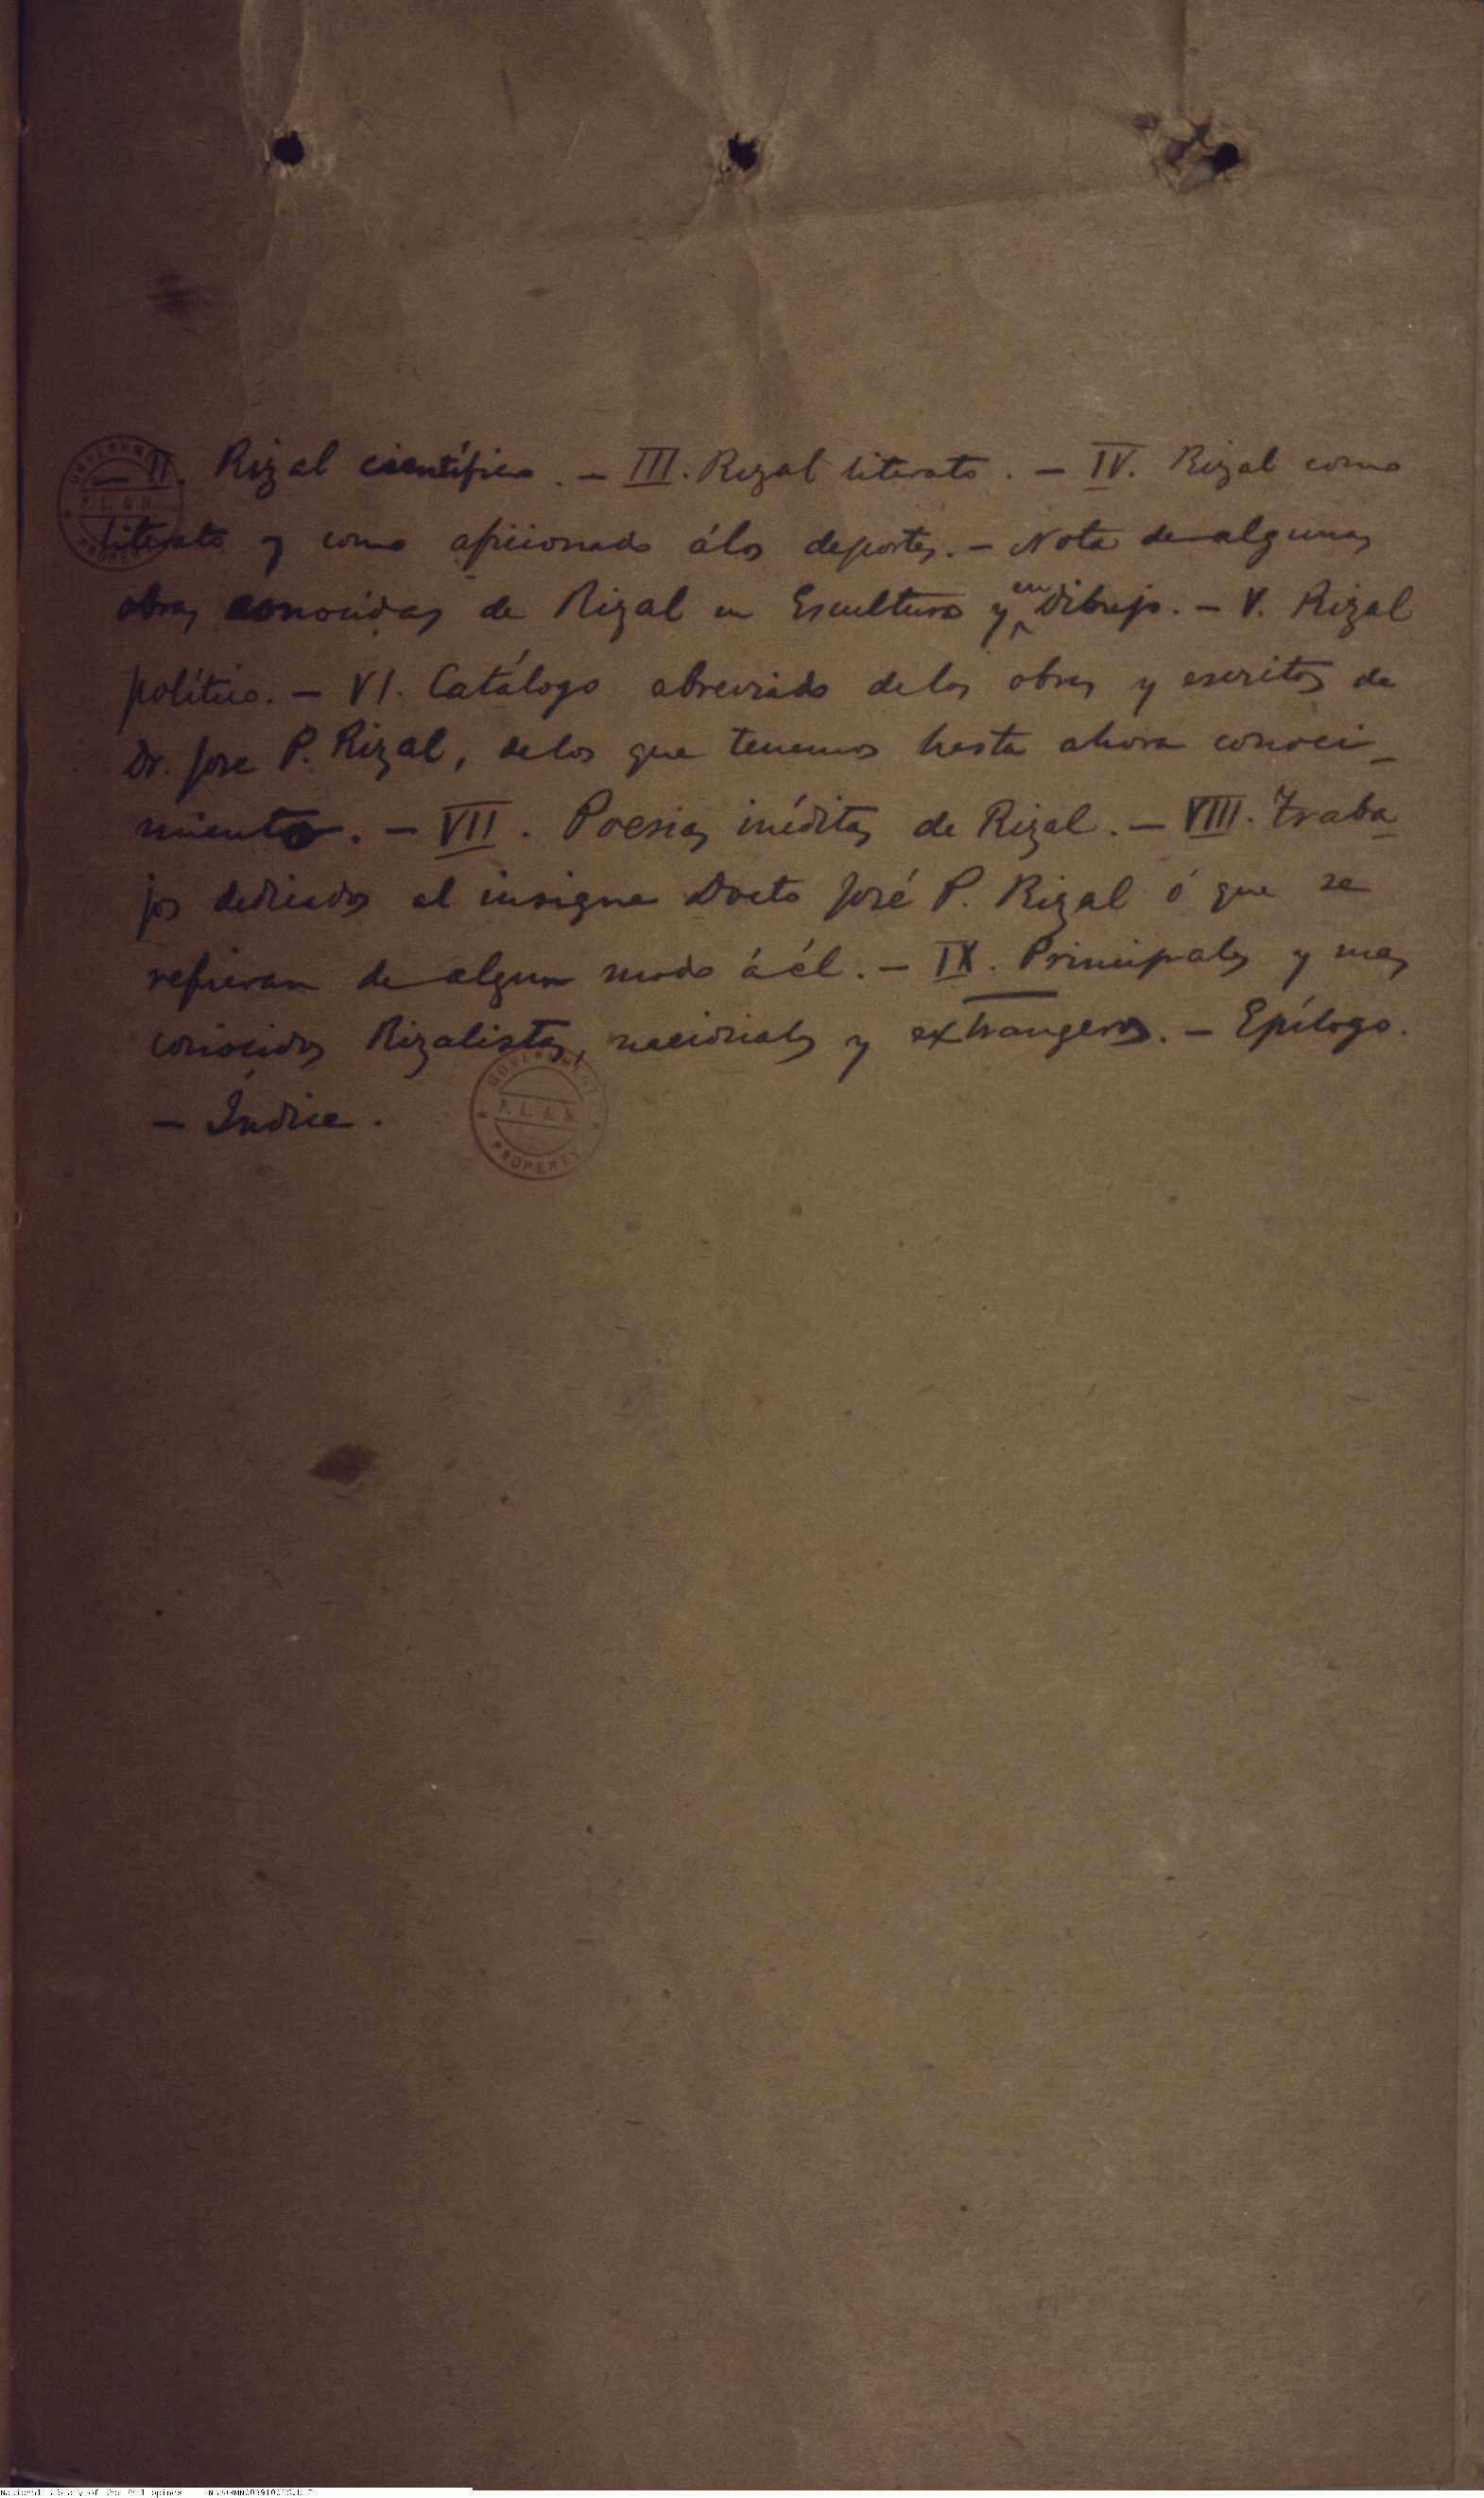 — II. Rizal científico. — III. Rizal literato. — IV. Rizal como
literato y como aficionado á los deportes. — Nota de algunas
obras conocidas de Rizal en Escultura y en Dibujo. — V. Rizal
político. — VI. Catálogo abreviado de las obras y escritos de
Dr. Jose P. Rizal, de los que tenemos hasta ahora conoci-
miento. — VII. Poesias inéditas de Rizal. — VIII. Traba-
jos dedicados al insigne Docto José P. Rizal ó que se
refieran de algun modo á él. — IX. Principales y mas
conocidos Rizalistas, nacionales y extrangeros. — Epílogo.
— Índice.
GOVERNMENT
P. L. & M.
PROPERTY
National Library of the Philippines